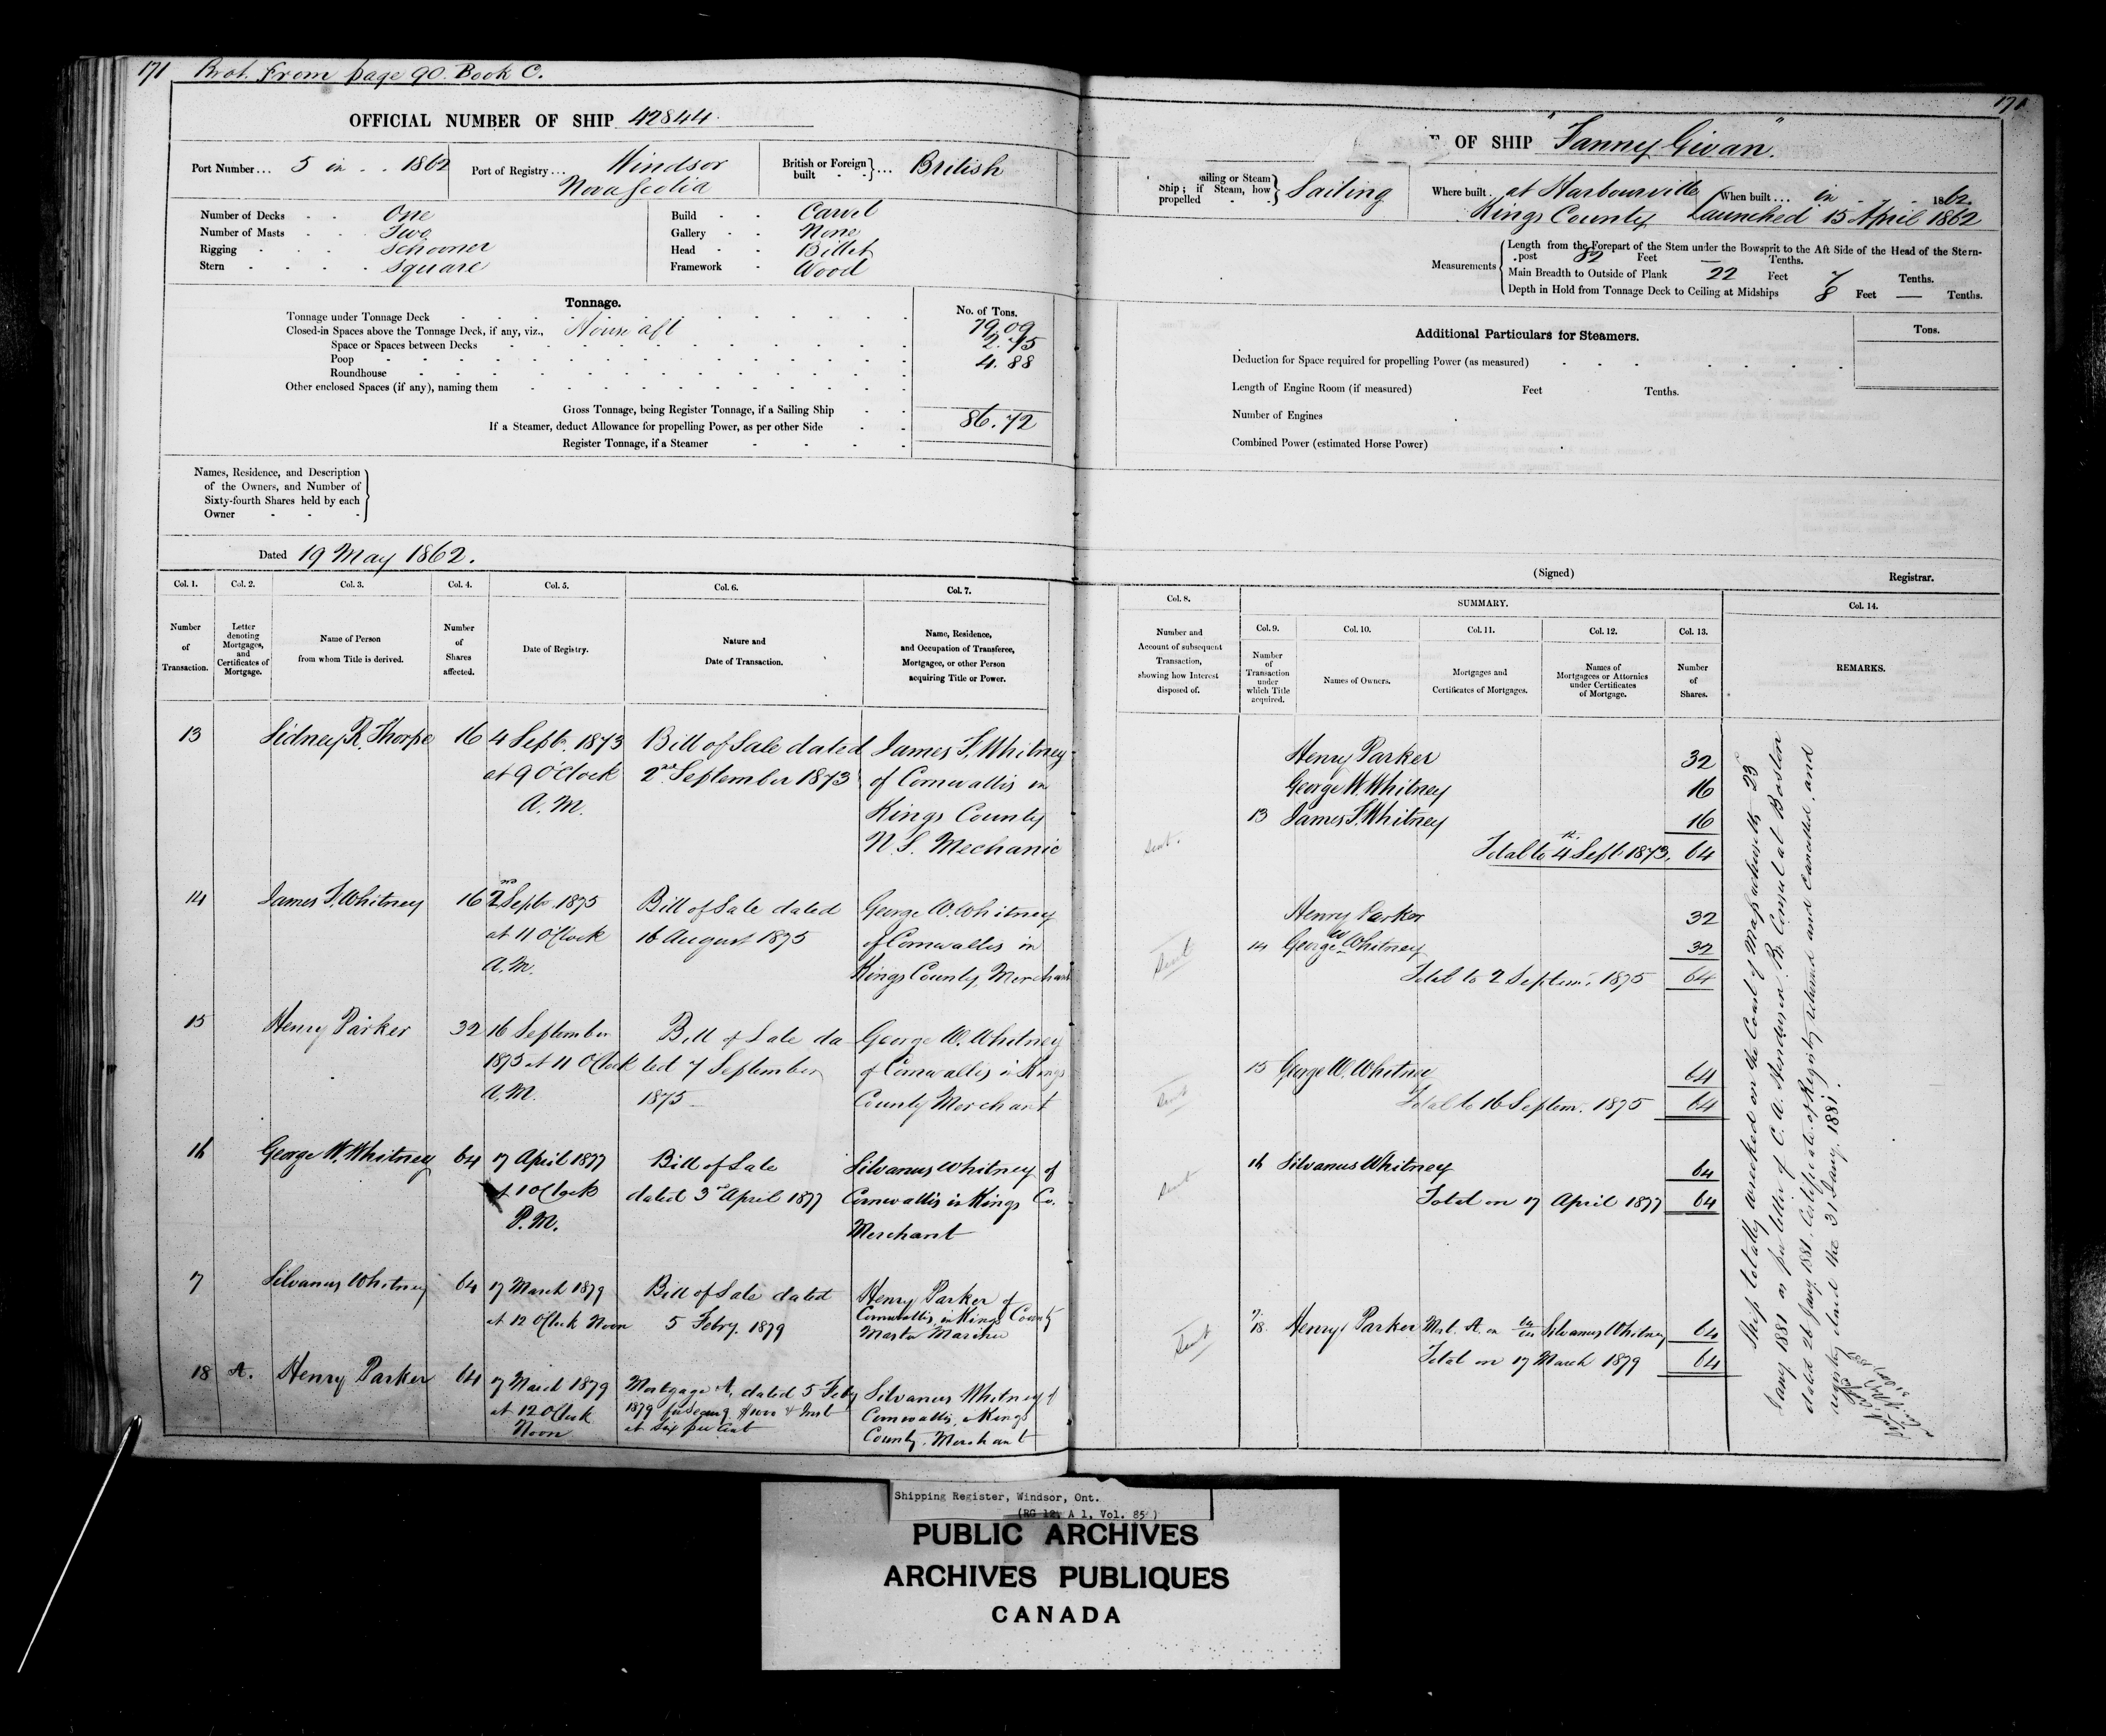 171 Brot. From page 90. Book C.
OFFICIAL NUMBER OF SHIP 42844.
Port Number... 5 in .. 1862
Port of Registry... Windsor
Nova Scotia
British or Foreign built } ... British
Number of Decks One
Number of Masts Two
Rigging Schooner
Stern Square
Build Carvel
Gallery None
Head Billet
Framework Wood
Tonnage.
No. of Tons.
Tonnage under Tonnage Deck 79.09
Closed-in Spaces above the Tonnage Deck, if any, viz., House aft
Space or Spaces between Decks 2.75
Poop 4.88
Roundhouse
Other enclosed Spaces (if any), naming them
Gross Tonnage, being Register Tonnage, if a Sailing Ship 86.72
If a Steamer, deduct Allowance for propelling Power, as per other Side
Register Tonnage, if a Steamer
Names, Residence, and Description
of the Owners, and Number of
Sixty-fourth Shares held by each
Owner
Dated 19 May 1862.
Col. 1. Col. 2. Col. 3. Col. 4. Col. 5. Col. 6. Col. 7.
Number of Transaction.
Letter denoting Mortgages, and Certificates of Mortgage.
Name of Person from whom Title is derived.
Number of Shares affected.
Date of Registry.
Nature and Date of Transaction.
Name, Residence, and Occupation of Transferee, Mortgagee, or other Person acquiring Title or Power.
13 Sidney R. Thorpe 16 4 Sept. 1873 Bill of Sale dated James F. Whitney
at 9 O'Clock 2nd September 1873 of Cornwallis in
A.M. Kings County
N.S. Mechanic
14 James F. Whitney 16 2nd Sept. 1875 Bill of Sale dated George W. Whitney
at 11 O'Clock 16 August 1875 of Cornwallis in
A.M. Kings County, Merchant
15 Henry Parker 32 16 September Bill of Sale da George W. Whitney
1875 at 11 O'Clock ted 7 September of Cornwallis in Kings
A.M. 1875 County Merchant
16 George W. Whitney 64 17 April 1877 Bill of Sale Silvanus Whitney of
at 1 O'Clock dated 3rd April 1877 Cornwallis in Kings Co.
P.M. Merchant
17 Silvanus Whitney 64 17 March 1879 Bill of Sale dated Henry Parker of
at 12 O'Clock Noon 5 Febry. 1879 Cornwallis, in Kings County
Master Mariner
18 A. Henry Parker 64 17 March 1879 Mortgage A, dated 5 Feby Silvanus Whitney of
at 12 O'Clock 1879 Cornwallis, Kings
Noon at six per Cent County, Merchant
171
E OF SHIP "Fanny Givan".
ailing or Steam
Ship; if Steam, how
propelled } Sailing
Where built at Harbourville
Kings County
When built... in 1862.
Launched 15 April 1862
Measurements
Length from the Forepart of the Stem under the Bowsprit to the Aft Side of the Head of the Stern-
post 82 Feet — Tenths.
Main Breadth to Outside of Plank 22 Feet 7 Tenths.
Depth in Hold from Tonnage Deck to Ceiling at Midships 8 Feet — Tenths.
Additional Particulars for Steamers.
Tons.
Deduction for Space required for propelling Power (as measured)
Length of Engine Room (if measured) Feet Tenths.
Number of Engines
Combined Power (estimated Horse Power)
(Signed) Registrar.
Col. 8. SUMMARY. Col. 14.
Col. 9. Col. 10. Col. 11. Col. 12. Col. 13.
Number and Account of subsequent Transaction, showing how Interest disposed of.
Number of Transaction under which Title acquired.
Names of Owners.
Mortgages and Certificates of Mortgages.
Names of Mortgagees or Attornies under Certificates of Mortgage.
Number of Shares.
REMARKS.
Henry Parker 32
George W. Whitney 16
13 James F. Whitney 16
Sent. Total to 4th Sept. 1873, 64
Henry Parker 32
Sent 14 George W Whitney 32
Total to 2 Septem. 1875 64
15 George W. Whitney 64
Sent Total to 16 Septem. 1875 64
16 Silvanus Whitney 64
Sent Total on 17 April 1877 64
Sent 17. 18. Henry Parker Mort. A. on 64/64 Silvanus Whitney 64
Total on 17 March 1879 64
Ship totally wrecked on the Coast of Massachusetts 23
Jany. 1881 as per letter of C. A. Henderson Br. Consul at Boston
dated 26 Jany. 1881. Certificate of Registry returned and cancelled, and
registry closed the 31 Jany. 1881.
Shipping Register, Windsor, Ont.
(RG 12, A 1, Vol. 85)
PUBLIC ARCHIVES
ARCHIVES PUBLIQUES
CANADA